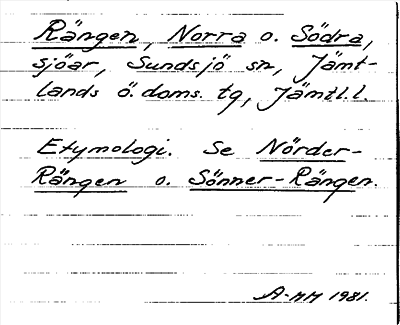 Rängen, Norra o. Södra,
sjöar, Sundsjö sn, Jämt-
lands ö. doms. tg, Jämtl.l.
Etymologi. Se Nörder-
Rängen o. Sönner-Rängen.
A-MM 1981.